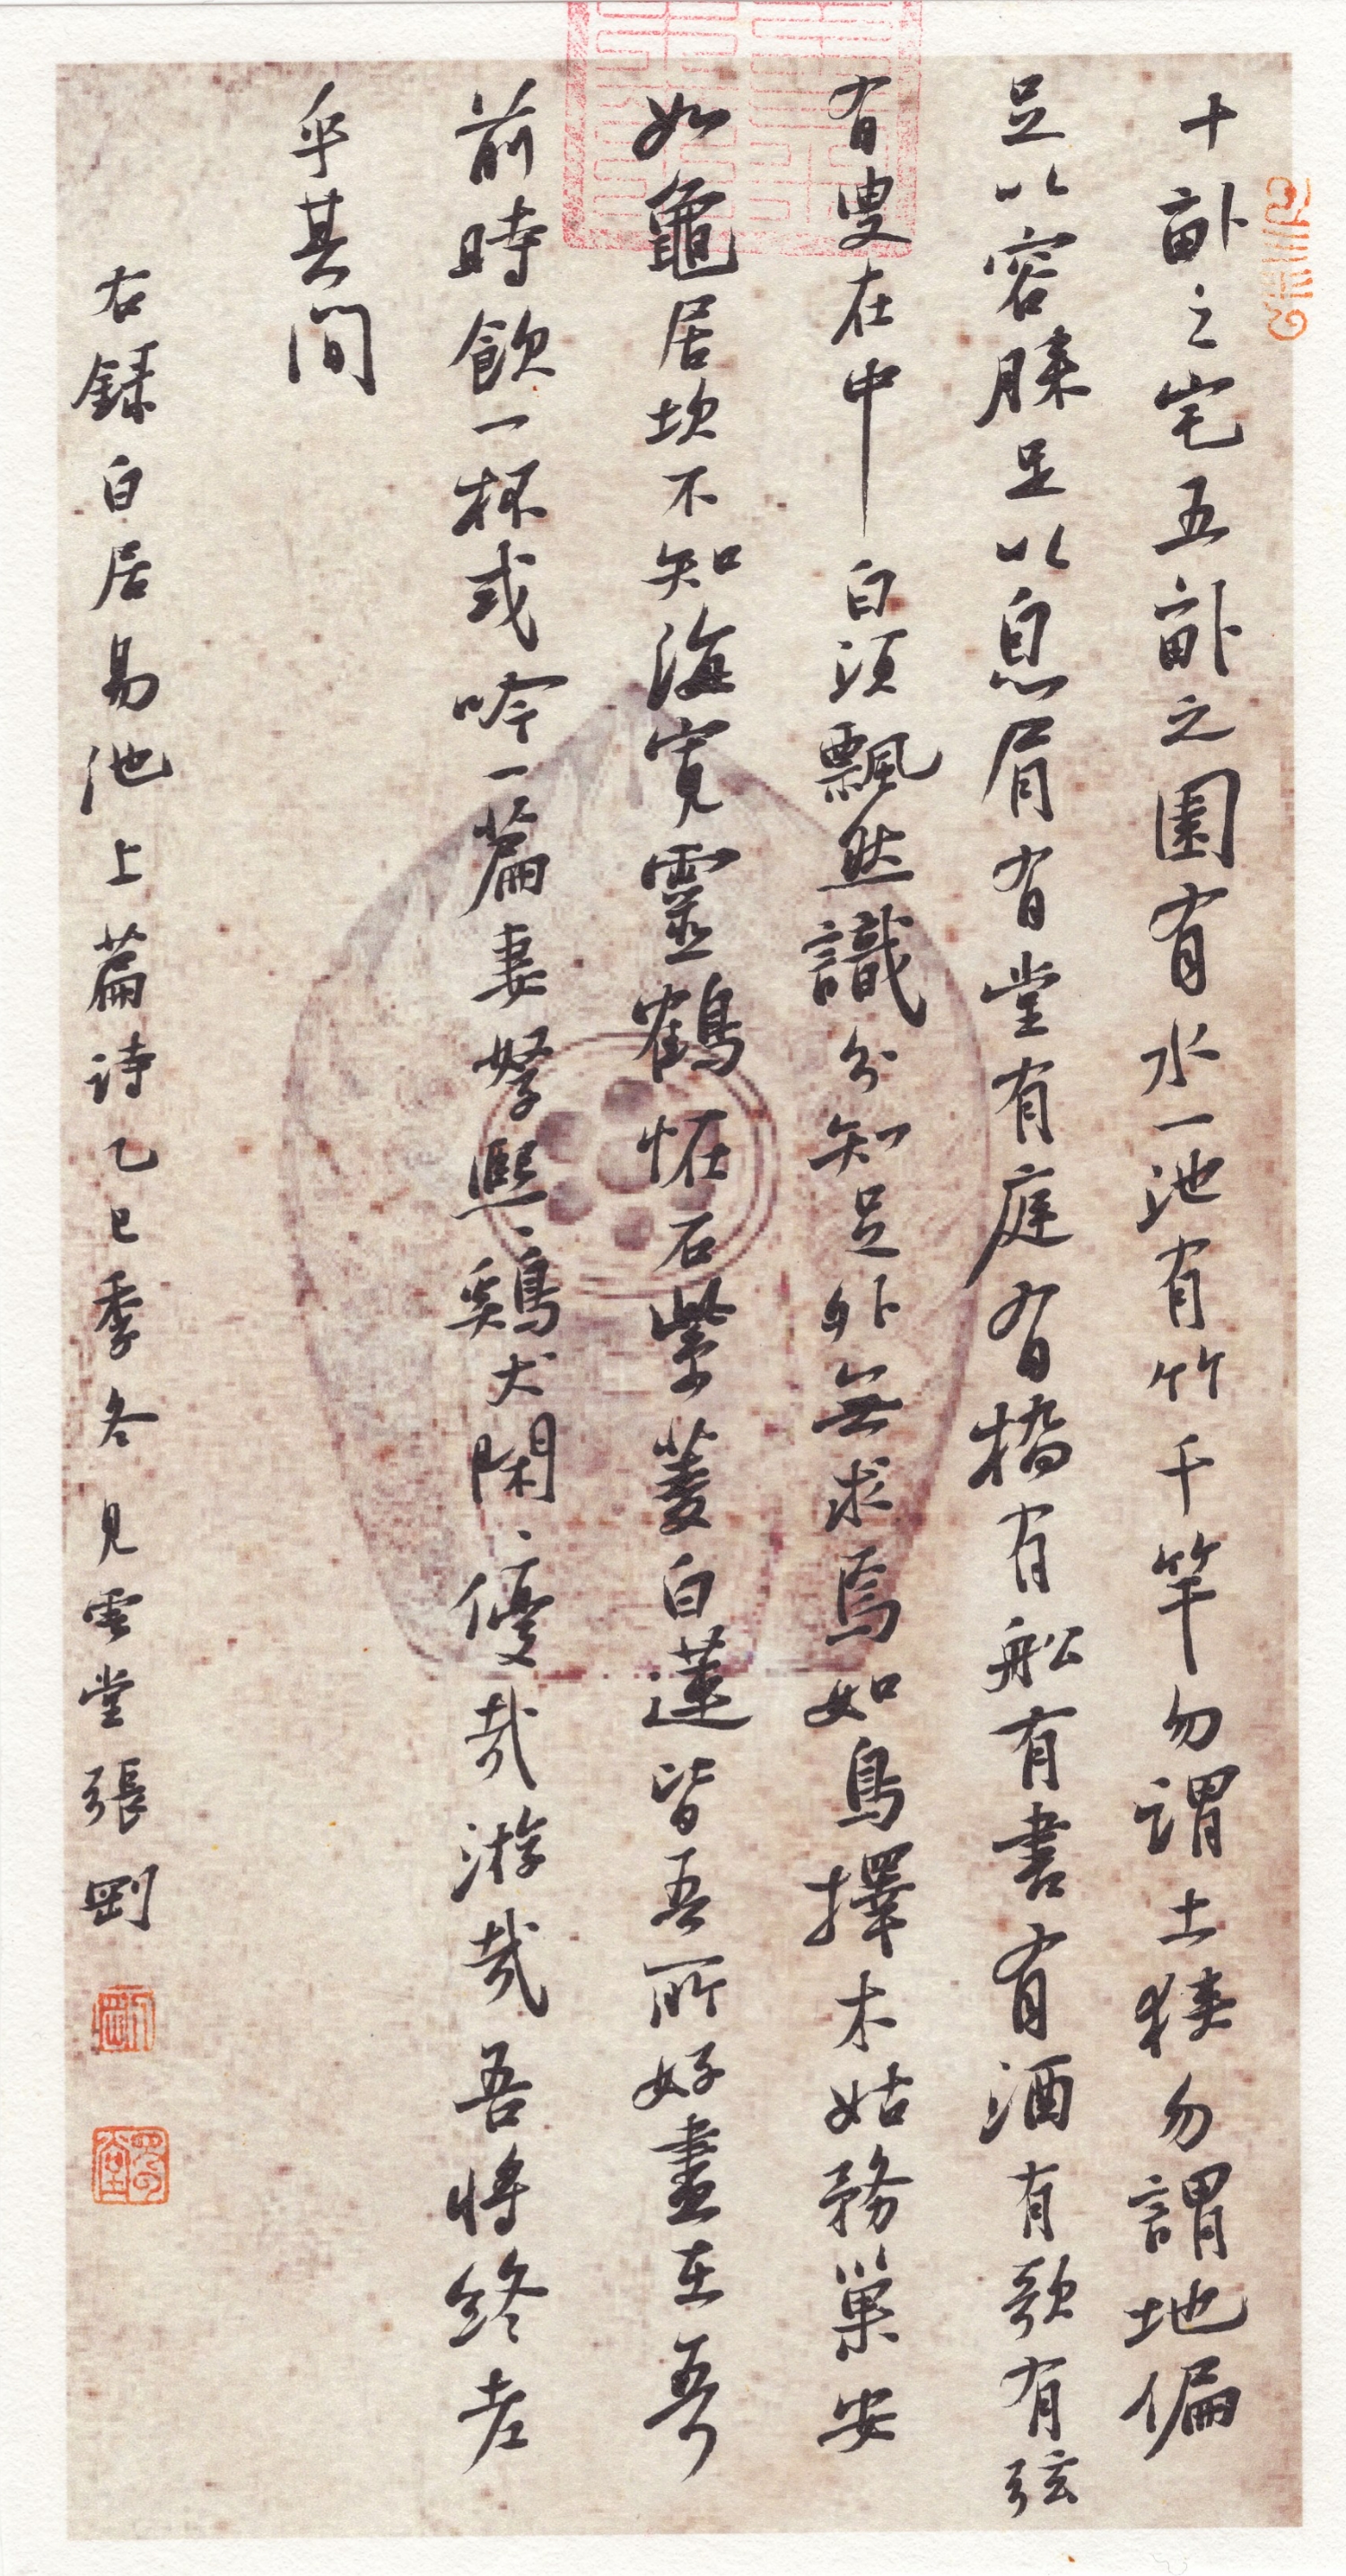 十畝之宅五畝之園有水一池有竹千竿勿謂土狹勿謂地偏
足以容膝足以息肩有堂有庭有橋有船有書有酒有歌有弦
有叟在中白須飄然識分知足外無求焉如鳥擇木姑務巢安
如龜居坎不知海寬靈鶴怪石紫菱白蓮皆吾所好盡在吾
前時飲一杯或吟一篇妻孥熙熙鷄犬閑閑優哉游哉吾將終老
乎其間
右録白居易池上篇詩乙巳季冬見雲堂張剛